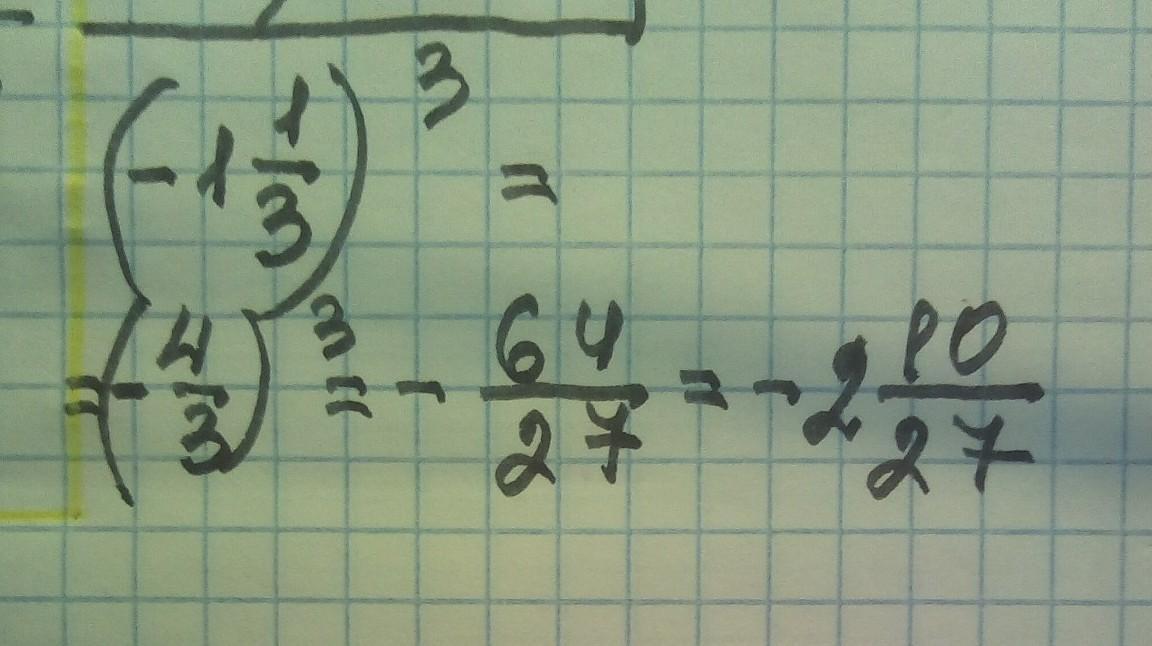 (-1 1/3)^3 =
=(-4/3)^3 = - 64/27 = -2 10/27